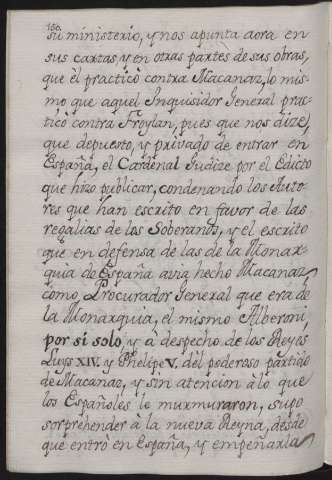 160.
su ministerio, y nos apunta aora en
sus cartas, y en otras partes de sus obras,
que el practicò contra Macanaz, lo mis-
mo que aquel Inquisidor General prac-
ticò contra Froylan, pues que nos dize,
que depuesto, y privado de entrar en
España, el Cardenal Judize por el Edicto
que hizo publicar, condenando los Auto-
res que han escrito en favor de las
regalias de los Soberanos, y el escrito
que en defensa de las de la Monar-
quia de España avia hecho Macanaz
como Procurador General que era de
la Monarquia, el mismo Alberoni,
por si solo, y à despecho de los Reyes
Luys XIV. y Phelipe V. del poderoso partido
de Macanaz, y sin atencion à lo que
los Españoles le murmuraron, supo
sorprehender à la nueva Reyna, desde
que entrò en España, y empeñarla